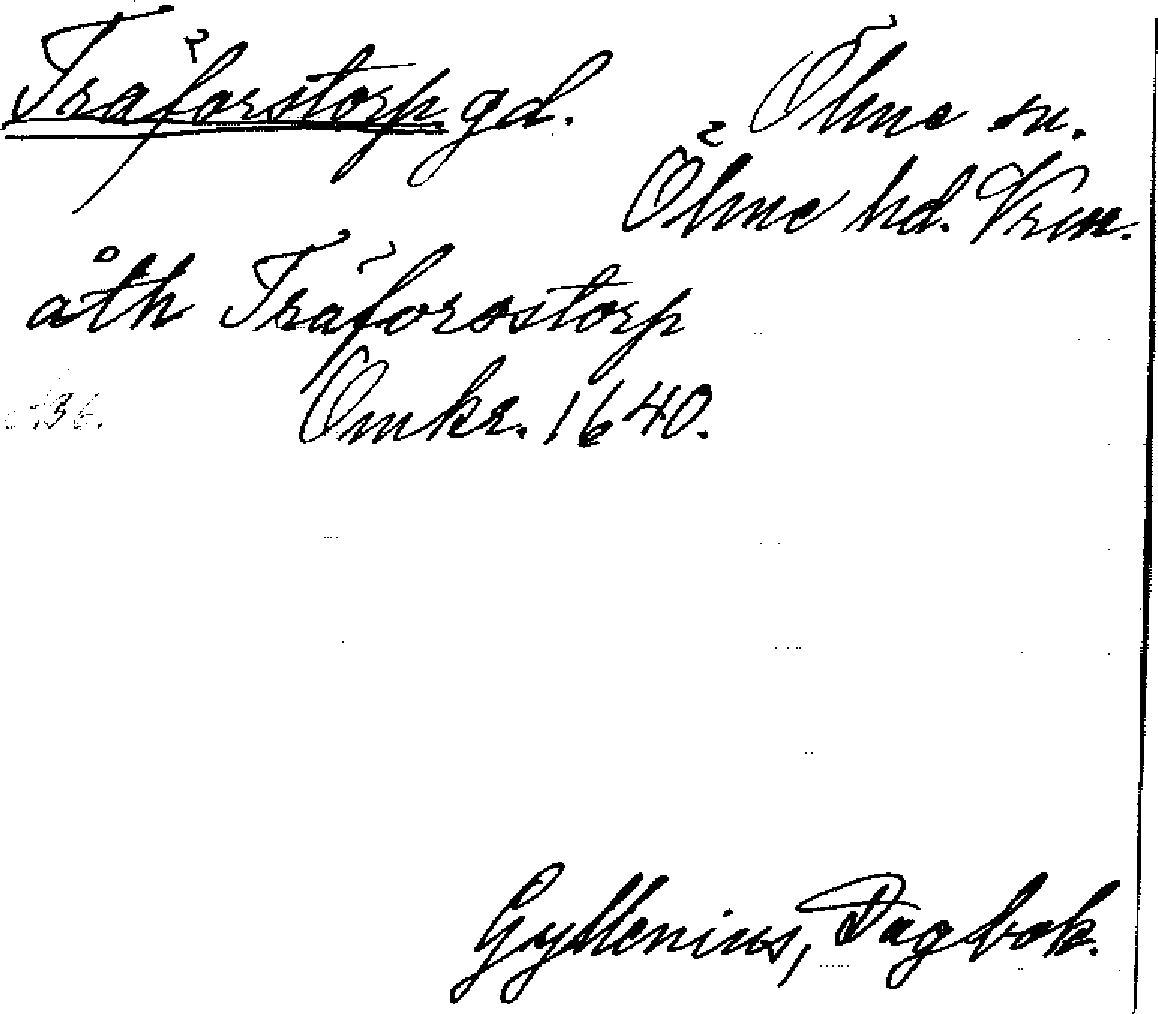 Träforstorp gd. Ölme sn.
Ölme hd. Vrm.
åth Träforsstorp
Omkr. 1640.
Gyllenius, Dagbok.